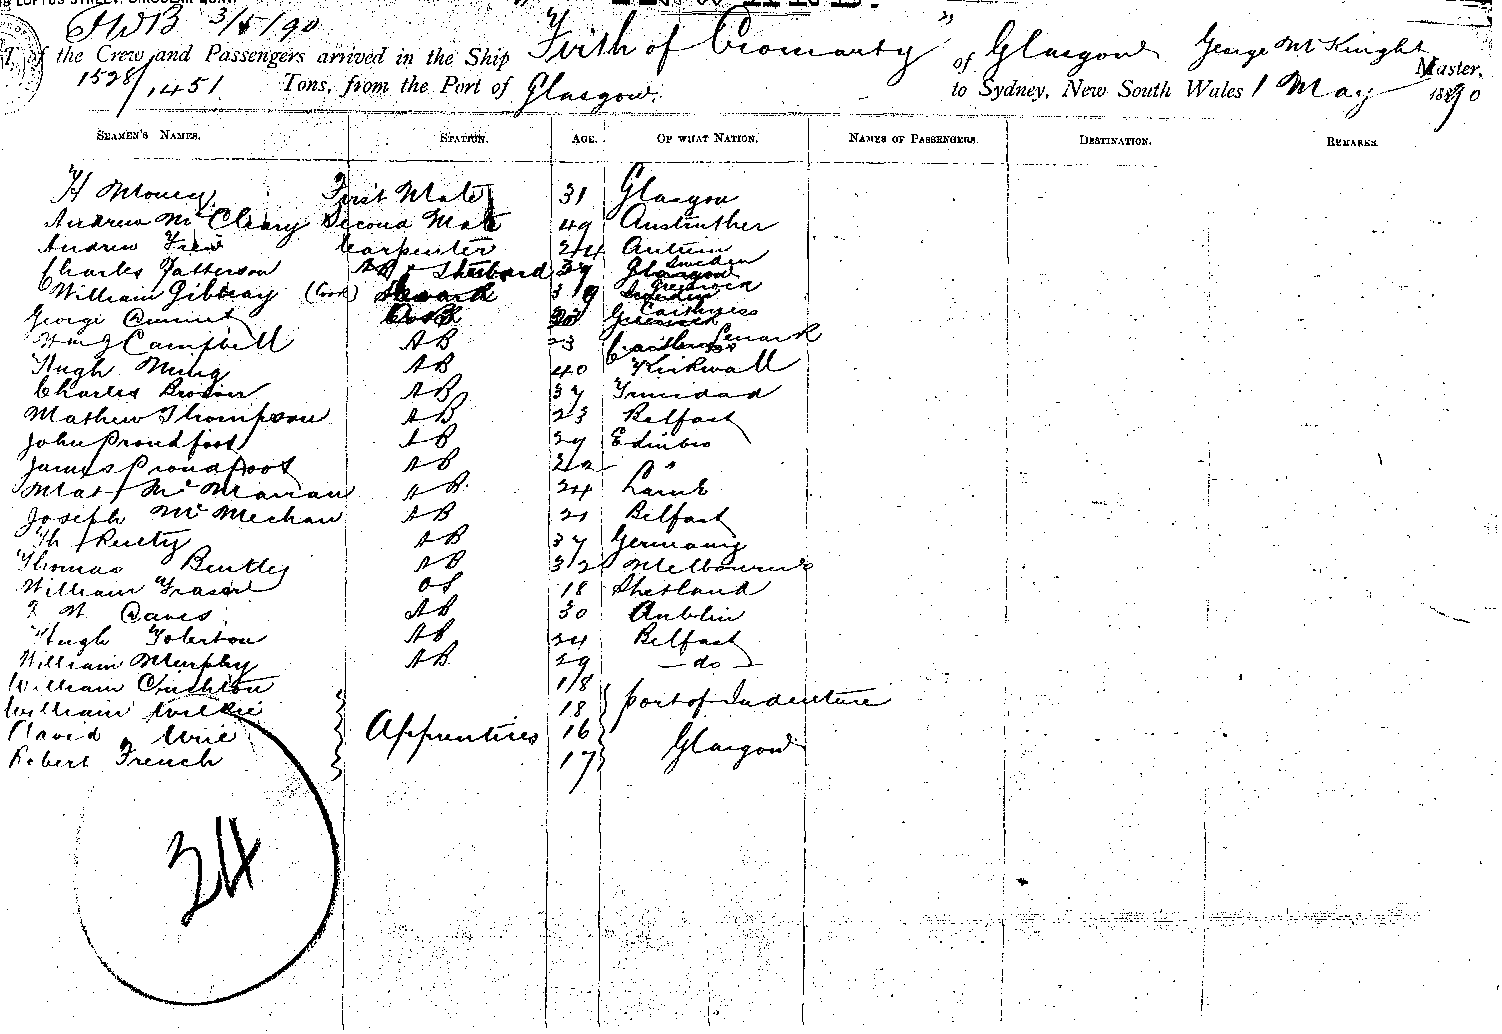 3/5/90
of the Crew and Passengers arrived in the Ship "Firth of Cromarty" of Glasgow George McKnight Master,
1528/1451 Tons, from the Port of Glasgow. to Sydney, New South Wales 1 May 1890
SEAMEN'S NAMES. STATION. AGE. OF WHAT NATION. NAMES OF PASSENGERS. DESTINATION. REMARKS.
First Mate 31 Glasgow
Andrew McCleary Second Mate 49 Anstruther
Andrew Frew Carpenter 24 Antrim
Charles Patterson AB 37 Sweden
William Gibbray (Cook) Steward Greenock
George Caithness
Wm J Campbell AB 23 Lanark
Hugh Ming AB 40 Kirkwall
Charles AB 37 Trinidad
Mathew Thompson AB 23 Belfast
John Proudfoot AB 27 Edinbro
James Proudfoot AB 22 "
AB 24 Larne
Joseph McMechan AB 21 Belfast
Th AB 37 Germany
Thomas Bentley AB 32 Melbourne
William Fraser OS 18 Shetland
Daves AB 30 Dublin
Hugh Tolerton AB 24 Belfast
William Murphy AB 29 - do -
William Crichton 18
William Wilkie 18 port of Indenture
David Apprentices 16 Glasgow
Robert French 17
24